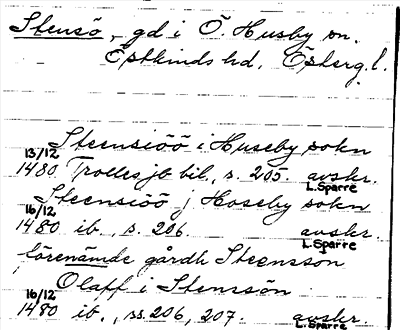 Stensö, gd i Ö. Husby sn.
Östkinds hd, Österg. l.
Steensiöö i Huseby sokn
13/12
1480 Trollesjö bil., s. 205. avskr.
L. Sparre
Steensiöö j Hoseby sokn
16/12
1480 ib., s. 206. avskr.
L. Sparre
förenämde gårdh Steensson
Olaff i Stenssön
16/12
1480 ib., ss. 206, 207. avskr.
L. Sparre